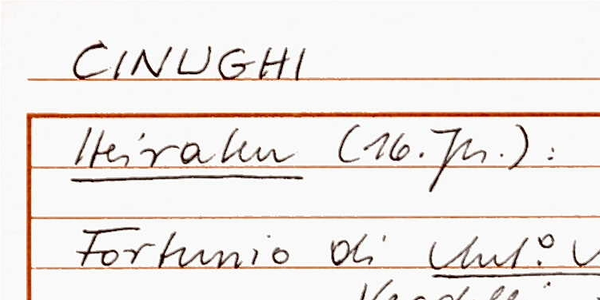 CINUGHI
Heiraten (16. Jh.):
Fortunio di Ant.º